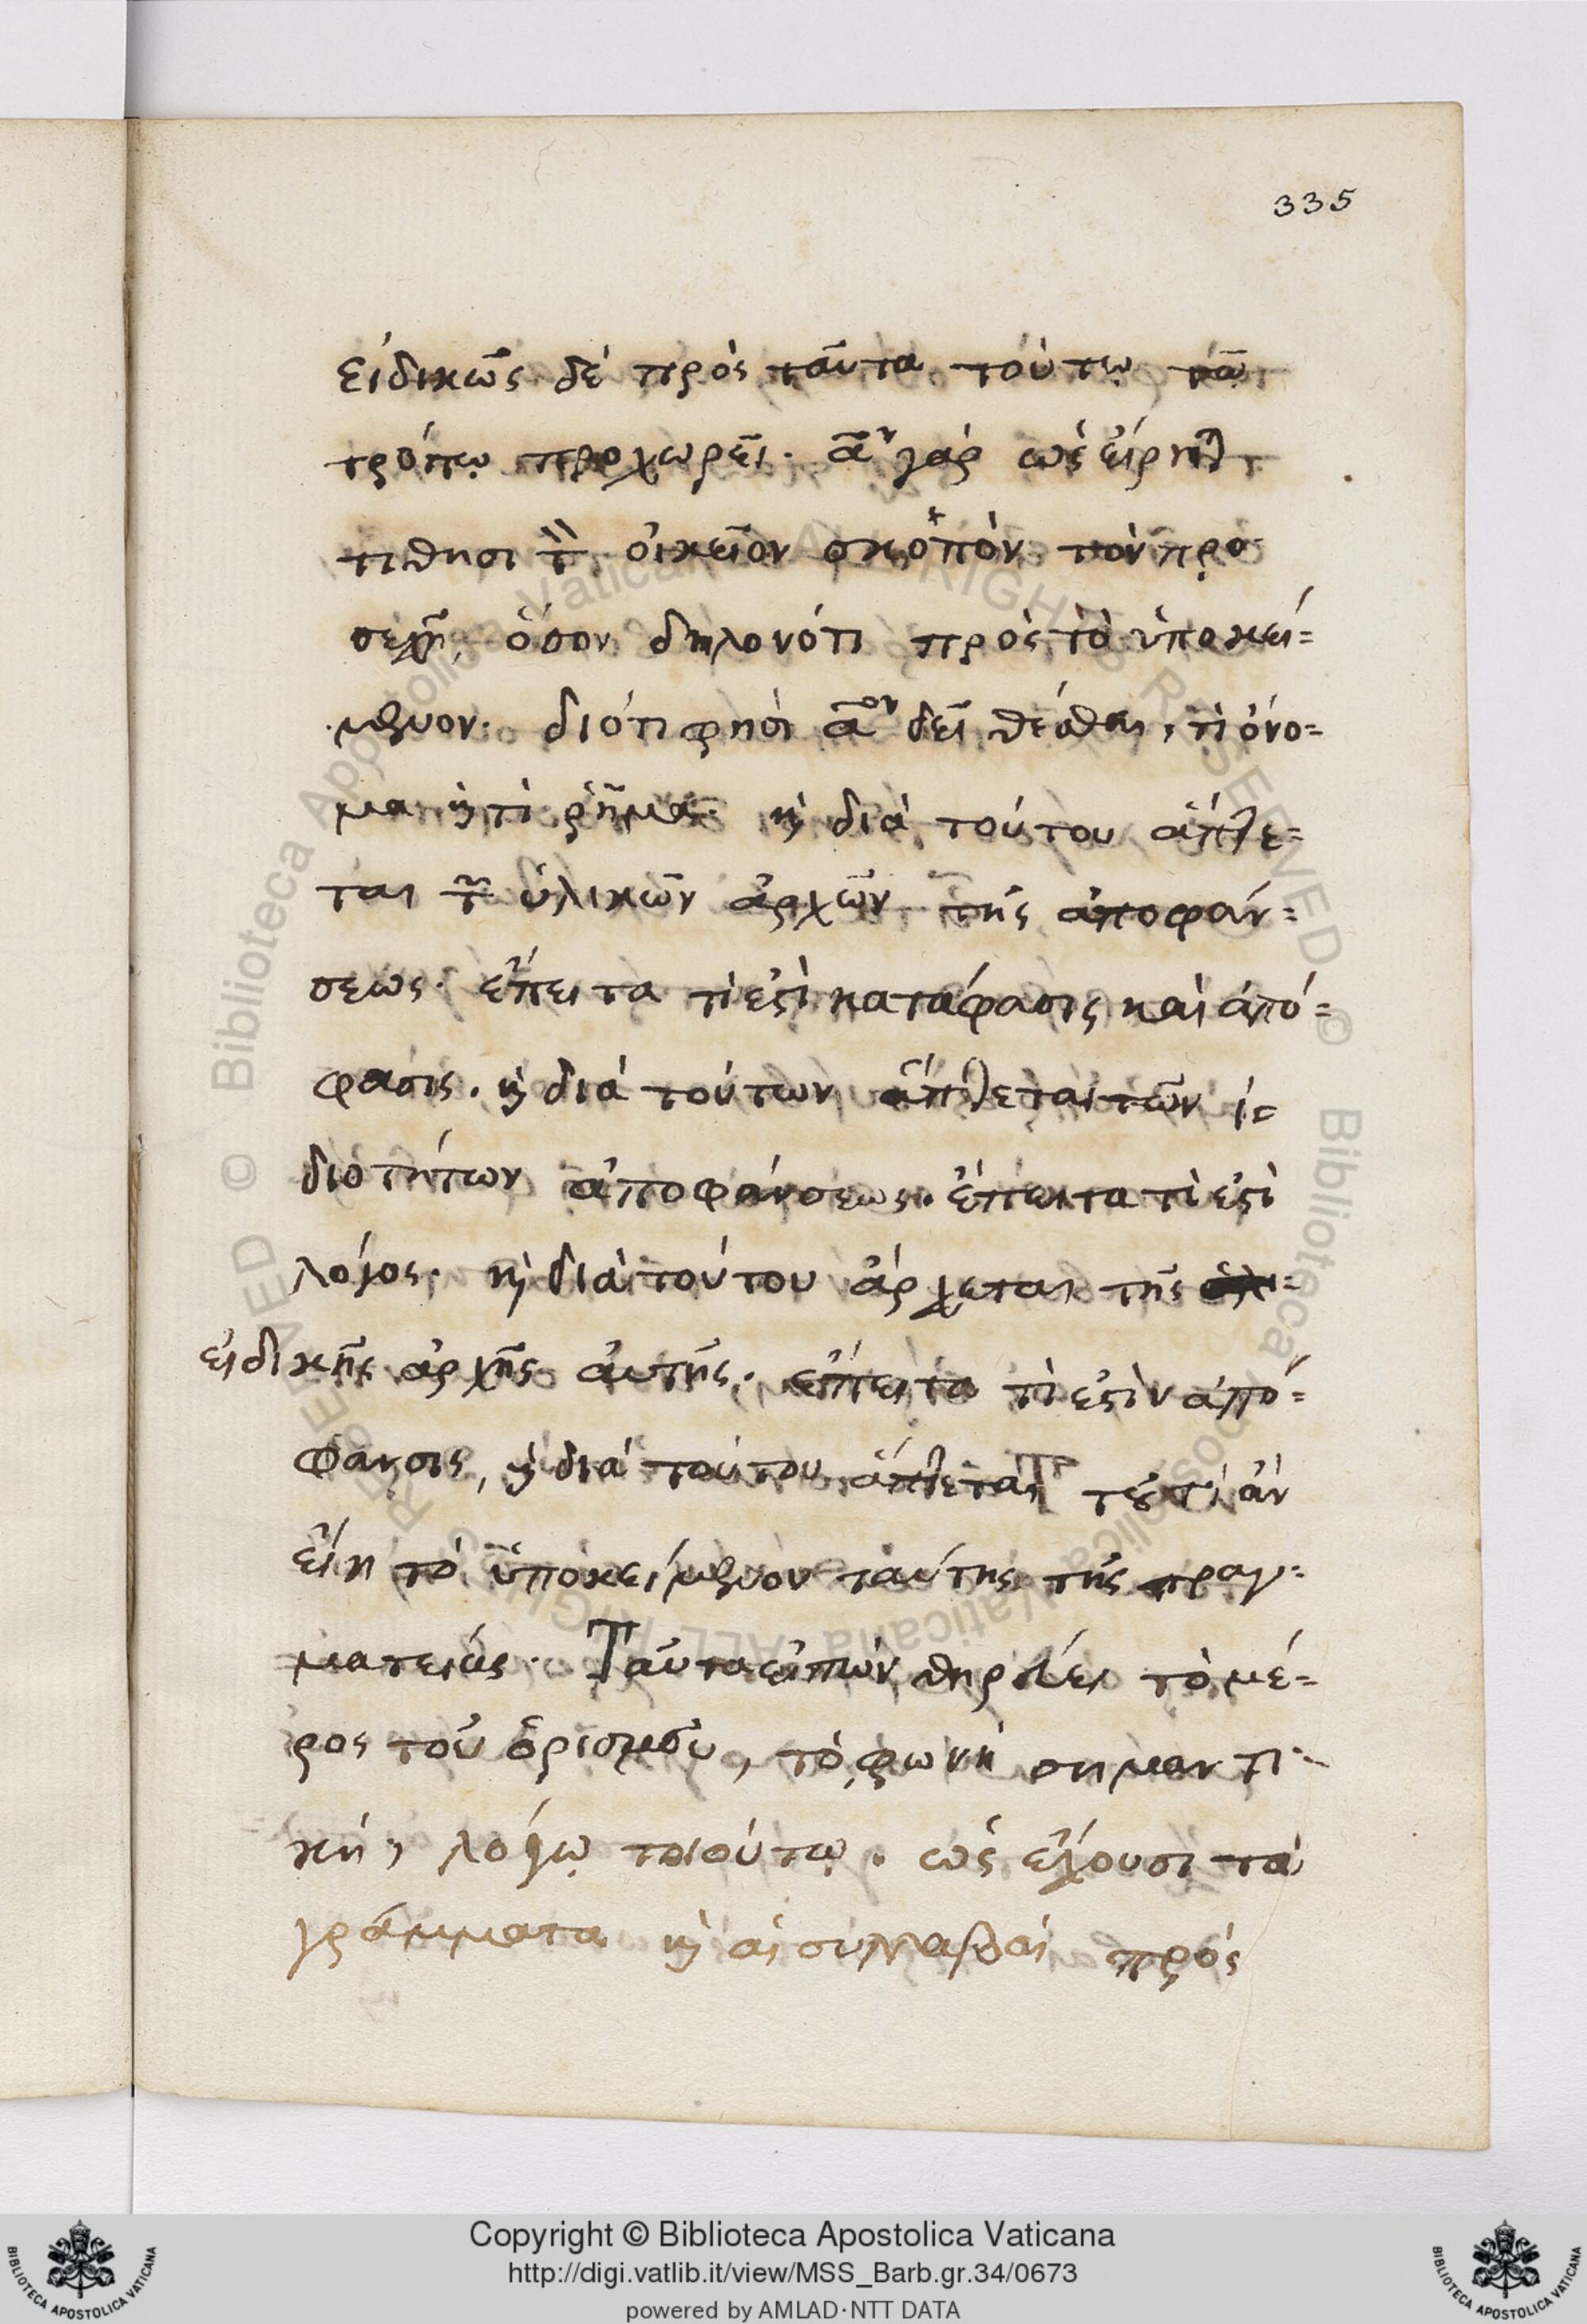 335
εἰδικῶς δὲ πρὸς ταῦτα τούτῳ τῶ
τρόπῳ προχωρεῖ. α^ον γὰρ ὡς εἴρηται
τίθησι τὸν οἰκεῖον σκοπὸν τὸν προ
σεχῆ, ὅσον δηλονότι πρὸς τὸ ὑποκεί=
μενον. διότι φησὶ α^ον δεῖ θέσθαι, τί ὄνο=
μα καὶ τί ῥῆμα. καὶ διὰ τούτου ἅπτε=
ται τῶν ὑλικῶν ἀρχῶν τῆς ἀποφάν=
σεως. ἔπειτα τί ἐστὶ κατάφασις καὶ ἀπό=
φασις. καὶ διὰ τούτων ἅπτεται τῶν ἰ=
διοτήτων ἀποφάνσεως. ἔπειτα τί ἐστὶ
λόγος. καὶ διὰ τούτου ἄρχεται τῆς
εἰδικῆς ἀρχῆς αὐτῆς. ἔπειτα τί ἐστὶν ἀπό=
φανσις, καὶ διὰ τούτου ἅπτεται τοῦ τί ἂν
εἴη τὸ ὑποκείμενον ταύτης τῆς πραγ=
ματείας. Ταῦτα εἰπὼν θηρεύει τὸ μέ=
ρος τοῦ ὁρισμοῦ, τὸ φωνὴ σημαντι=
κή, λόγῳ τοιούτῳ. ὡς ἔχουσι τὰ
γράμματα καὶ αἱ συλλαβαὶ πρὸς
© Biblioteca Apostolica Vaticana ALL RIGHTS RESERVED
Copyright © Biblioteca Apostolica Vaticana
http://digi.vatlib.it/view/MSS_Barb.gr.34/0673
powered by AMLAD·NTT DATA
BIBLIOTECA APOSTOLICA VATICANA
BIBLIOTECA APOSTOLICA VATICANA